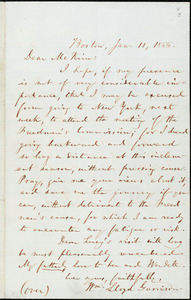 Boston, Jan. 11, 1866.
Dear McKim:
I hope, if my presence
is not of very considerable im-
portance, that I may be excused
from going to New York, next
week, to attend the meeting of the
Freedmen's Commission; for I dread
going backward and forward
so long a distance at this inclem-
ent season, without pressing cause.
Pray, give me your views about it
as to
the journey if you
can, without detriment to the Freed-
men's cause, for which I am ready
to encounter any fatigue or risk.
Dear Lucy's visit will long
be most pleasurably remembered.
My fatherly love to her and Wendell.
Yours, faithfully,
Wm. Lloyd Garrison.
(over)